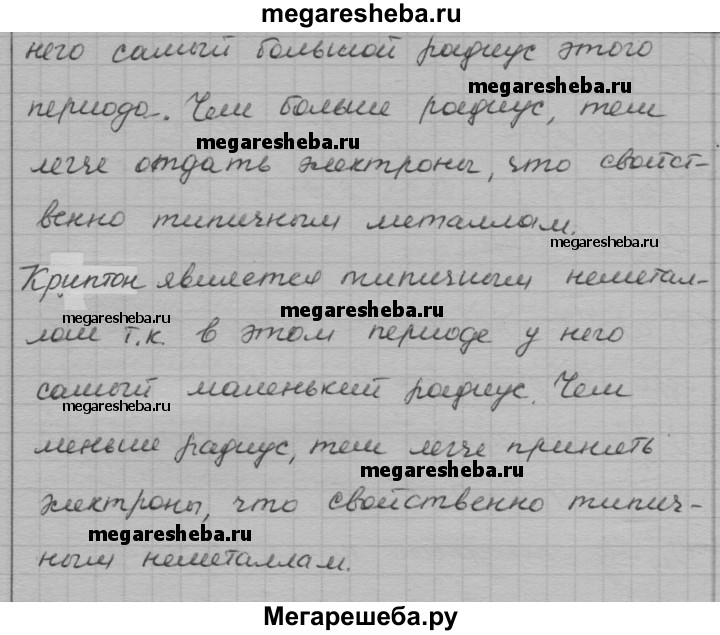 megaresheba.ru
него самый большой радиус этого
megaresheba.ru
периода. Чем больше радиус, тем
megaresheba.ru
легче отдать электроны, что свойст-
венно типичным металлам.
megaresheba.ru
Криптон является типичным неметал-
megaresheba.ru
megaresheba.ru
лом т.к. в этом периоде у него
самый маленький радиус. Чем
megaresheba.ru
меньше радиус, тем легче принять
megaresheba.ru
электроны, что свойственно типич-
megaresheba.ru
ным неметаллам.
Мегарешеба.ру